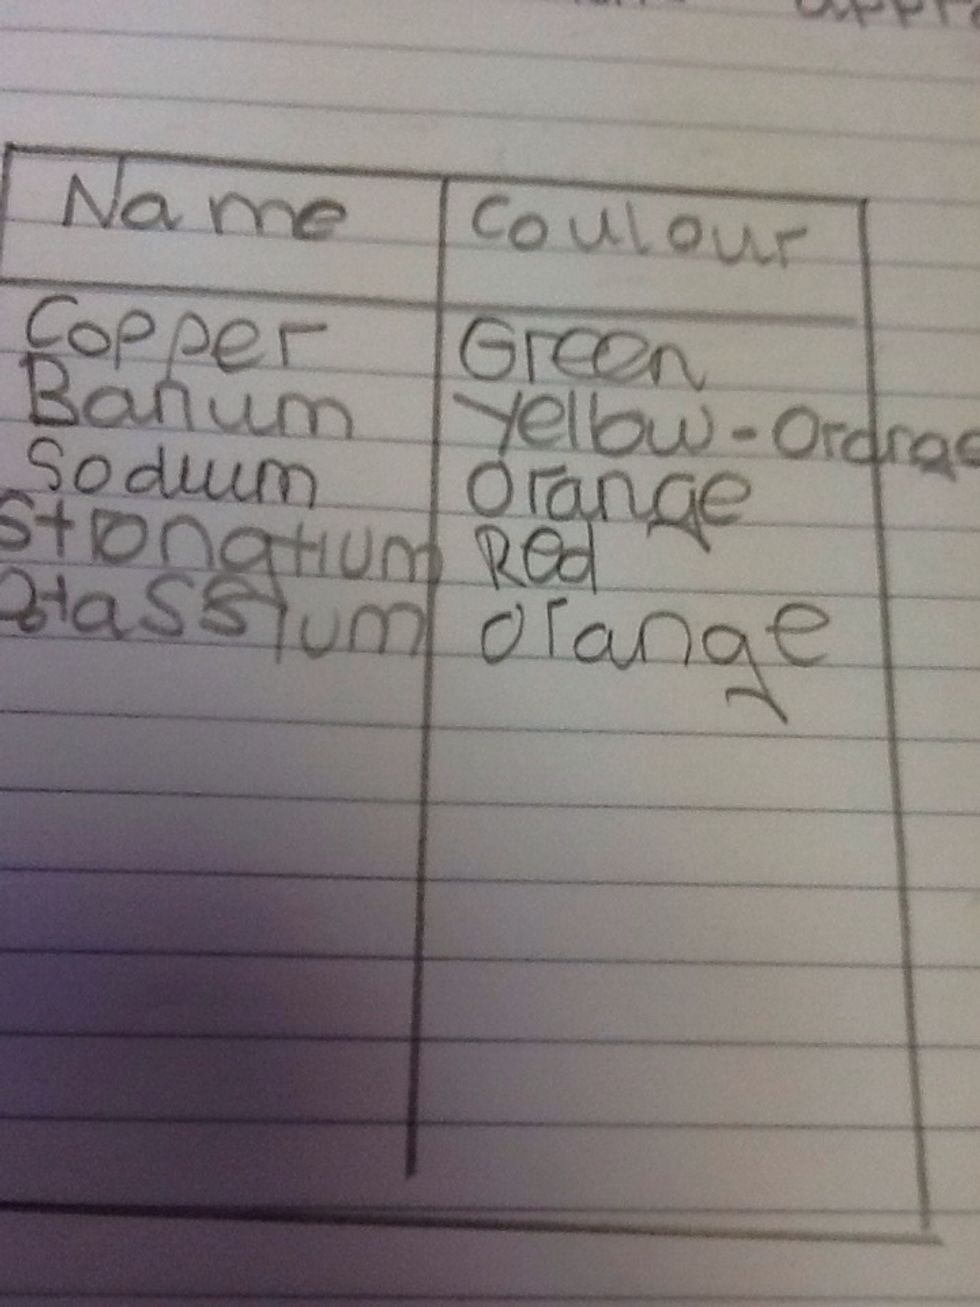 appr
Name Coulour
Copper Green
Barium Yellow-Ordnage
Sodium Orange
Strongtium Red
Potassium Orange